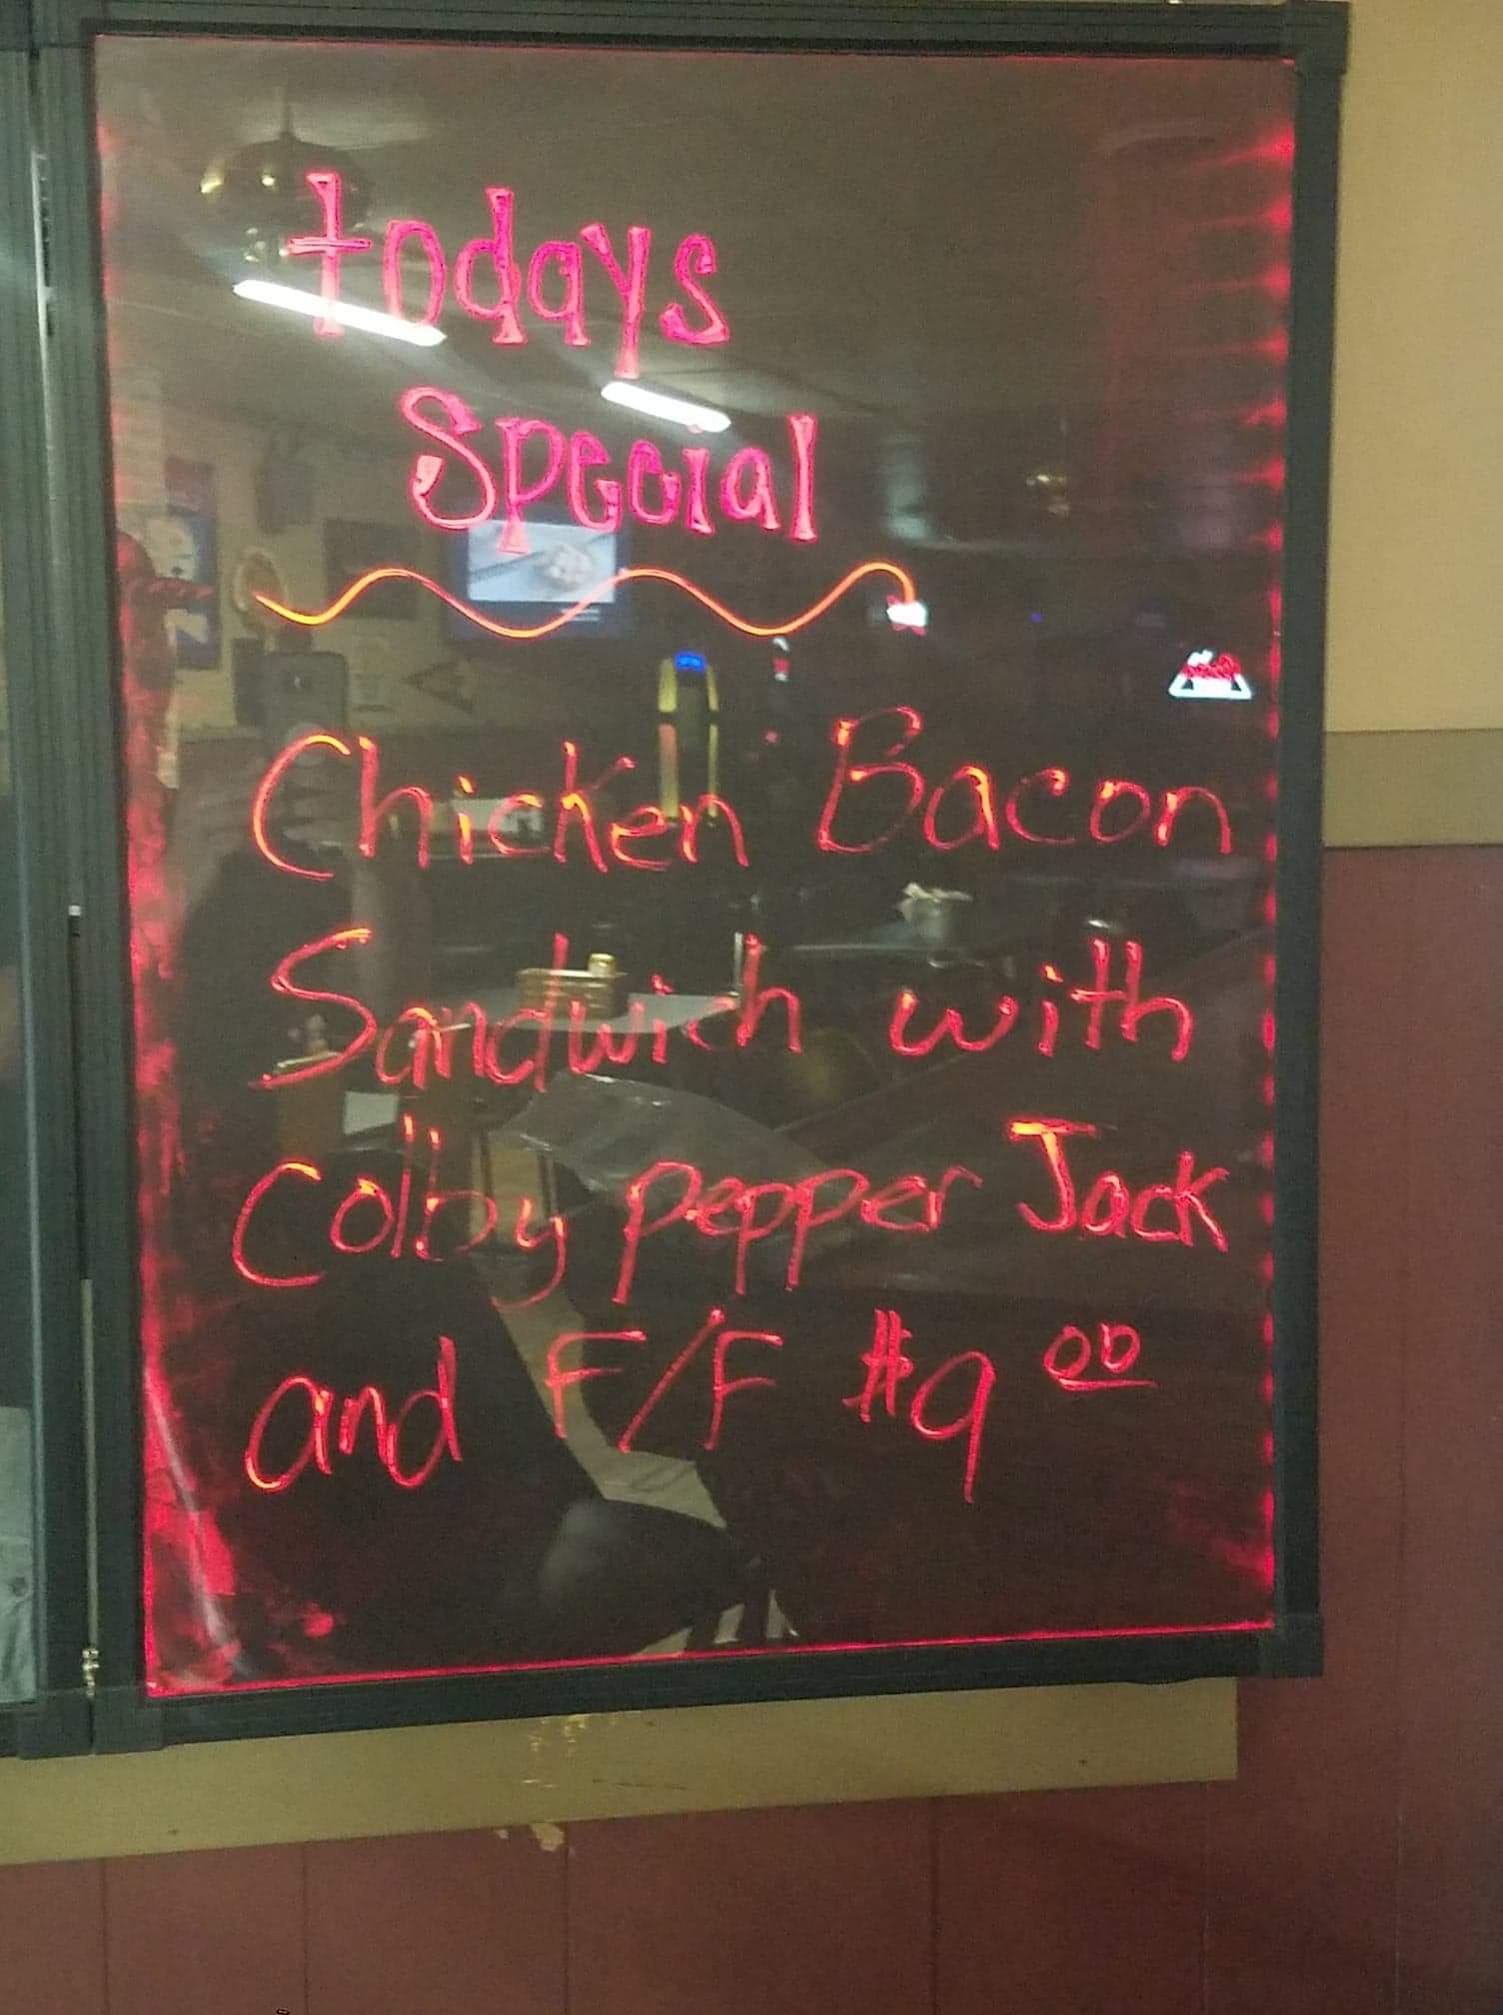 todays
special
Chicken Bacon
Sandwich with
Colby pepper Jack
and F/F $9.00